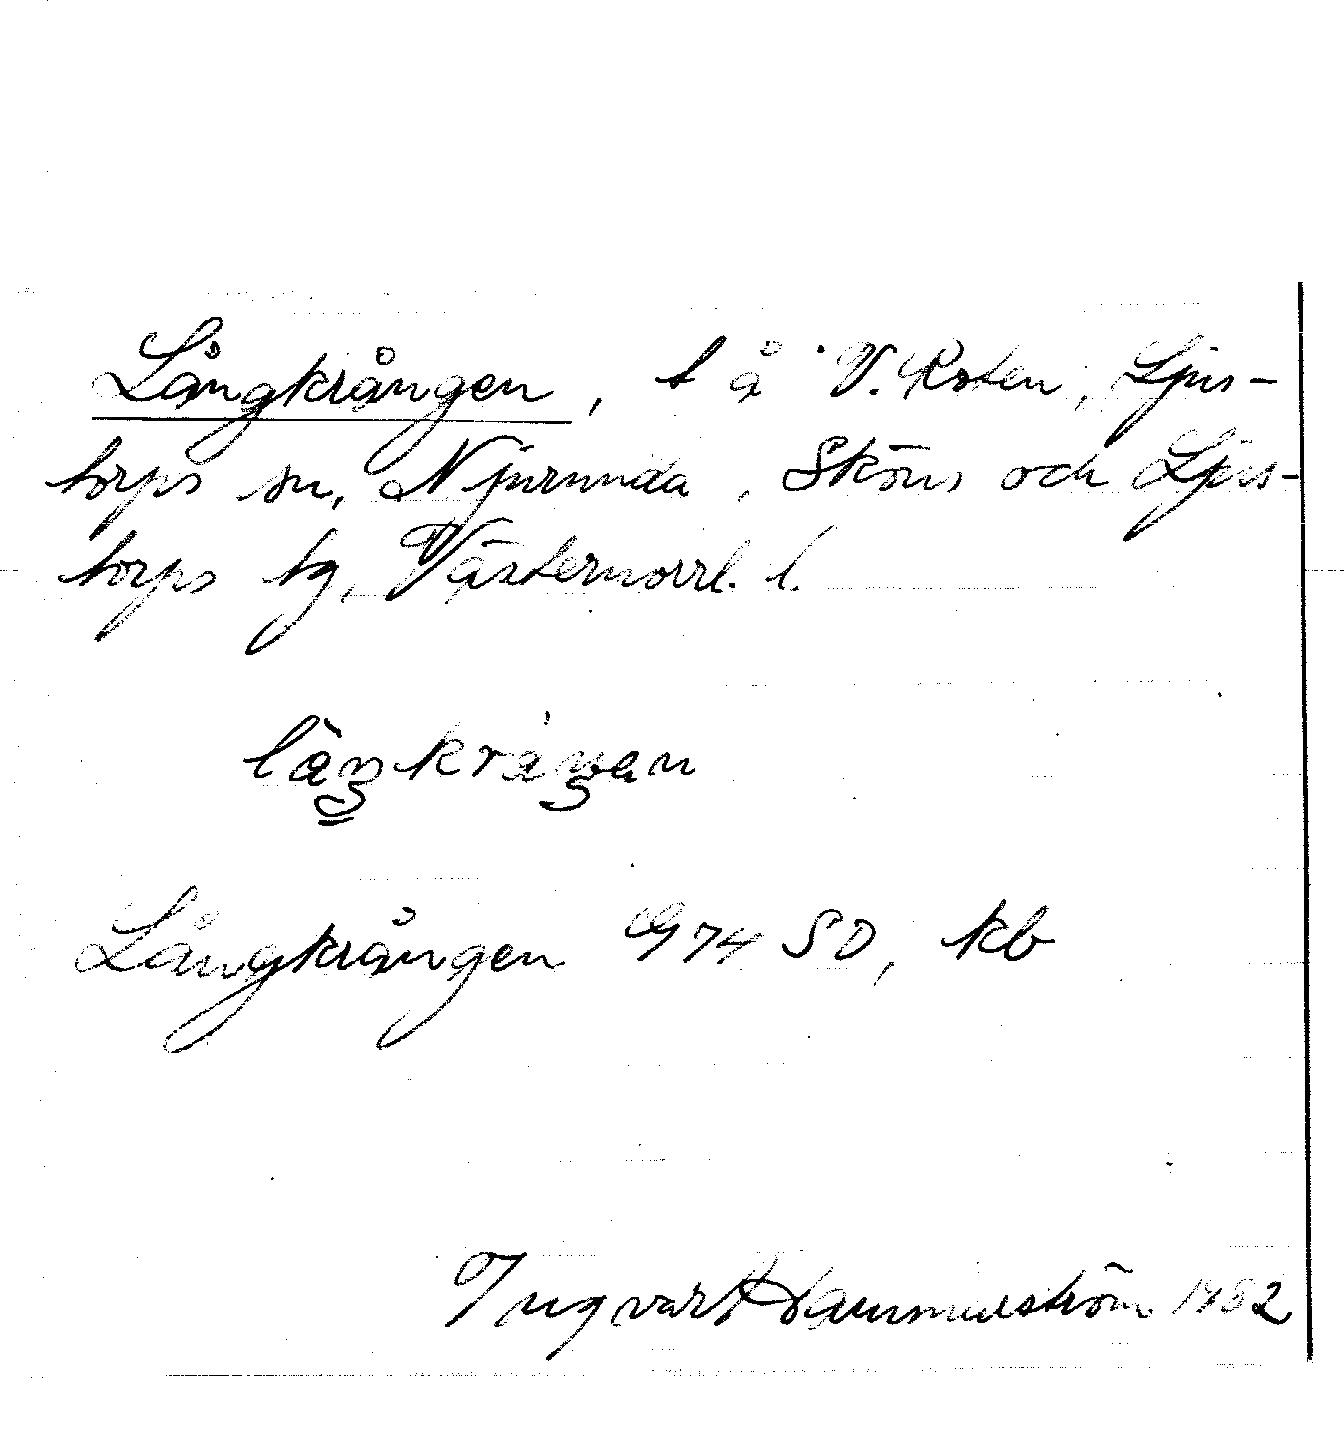 Långkrången, t å V. Rsten, Ljus-
torps sn, Njurunda, Sköns och Ljus-
torps tg, Västernorrl. l.
Långkrången G74 SD, kb
Ingvar Hammarström 1932